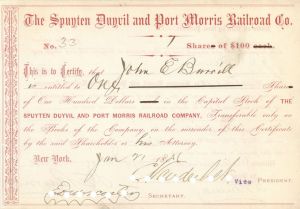 The Spuyten Duyvil and Port Morris Railroad Co.
No. 33 1 Shares of $100 each.
This is to Certify, that John E Burrill
is entitled to One Share
of One Hundred Dollars each in the Capital Stock of THE
SPUYTEN DUYVIL AND PORT MORRIS RAILROAD COMPANY, Transferable only on
the Books of the Company, on the surrender of this Certificate
by the said Shareholder or his Attorney.
New York, Jan 18
Vice PRESIDENT.
SECRETARY.